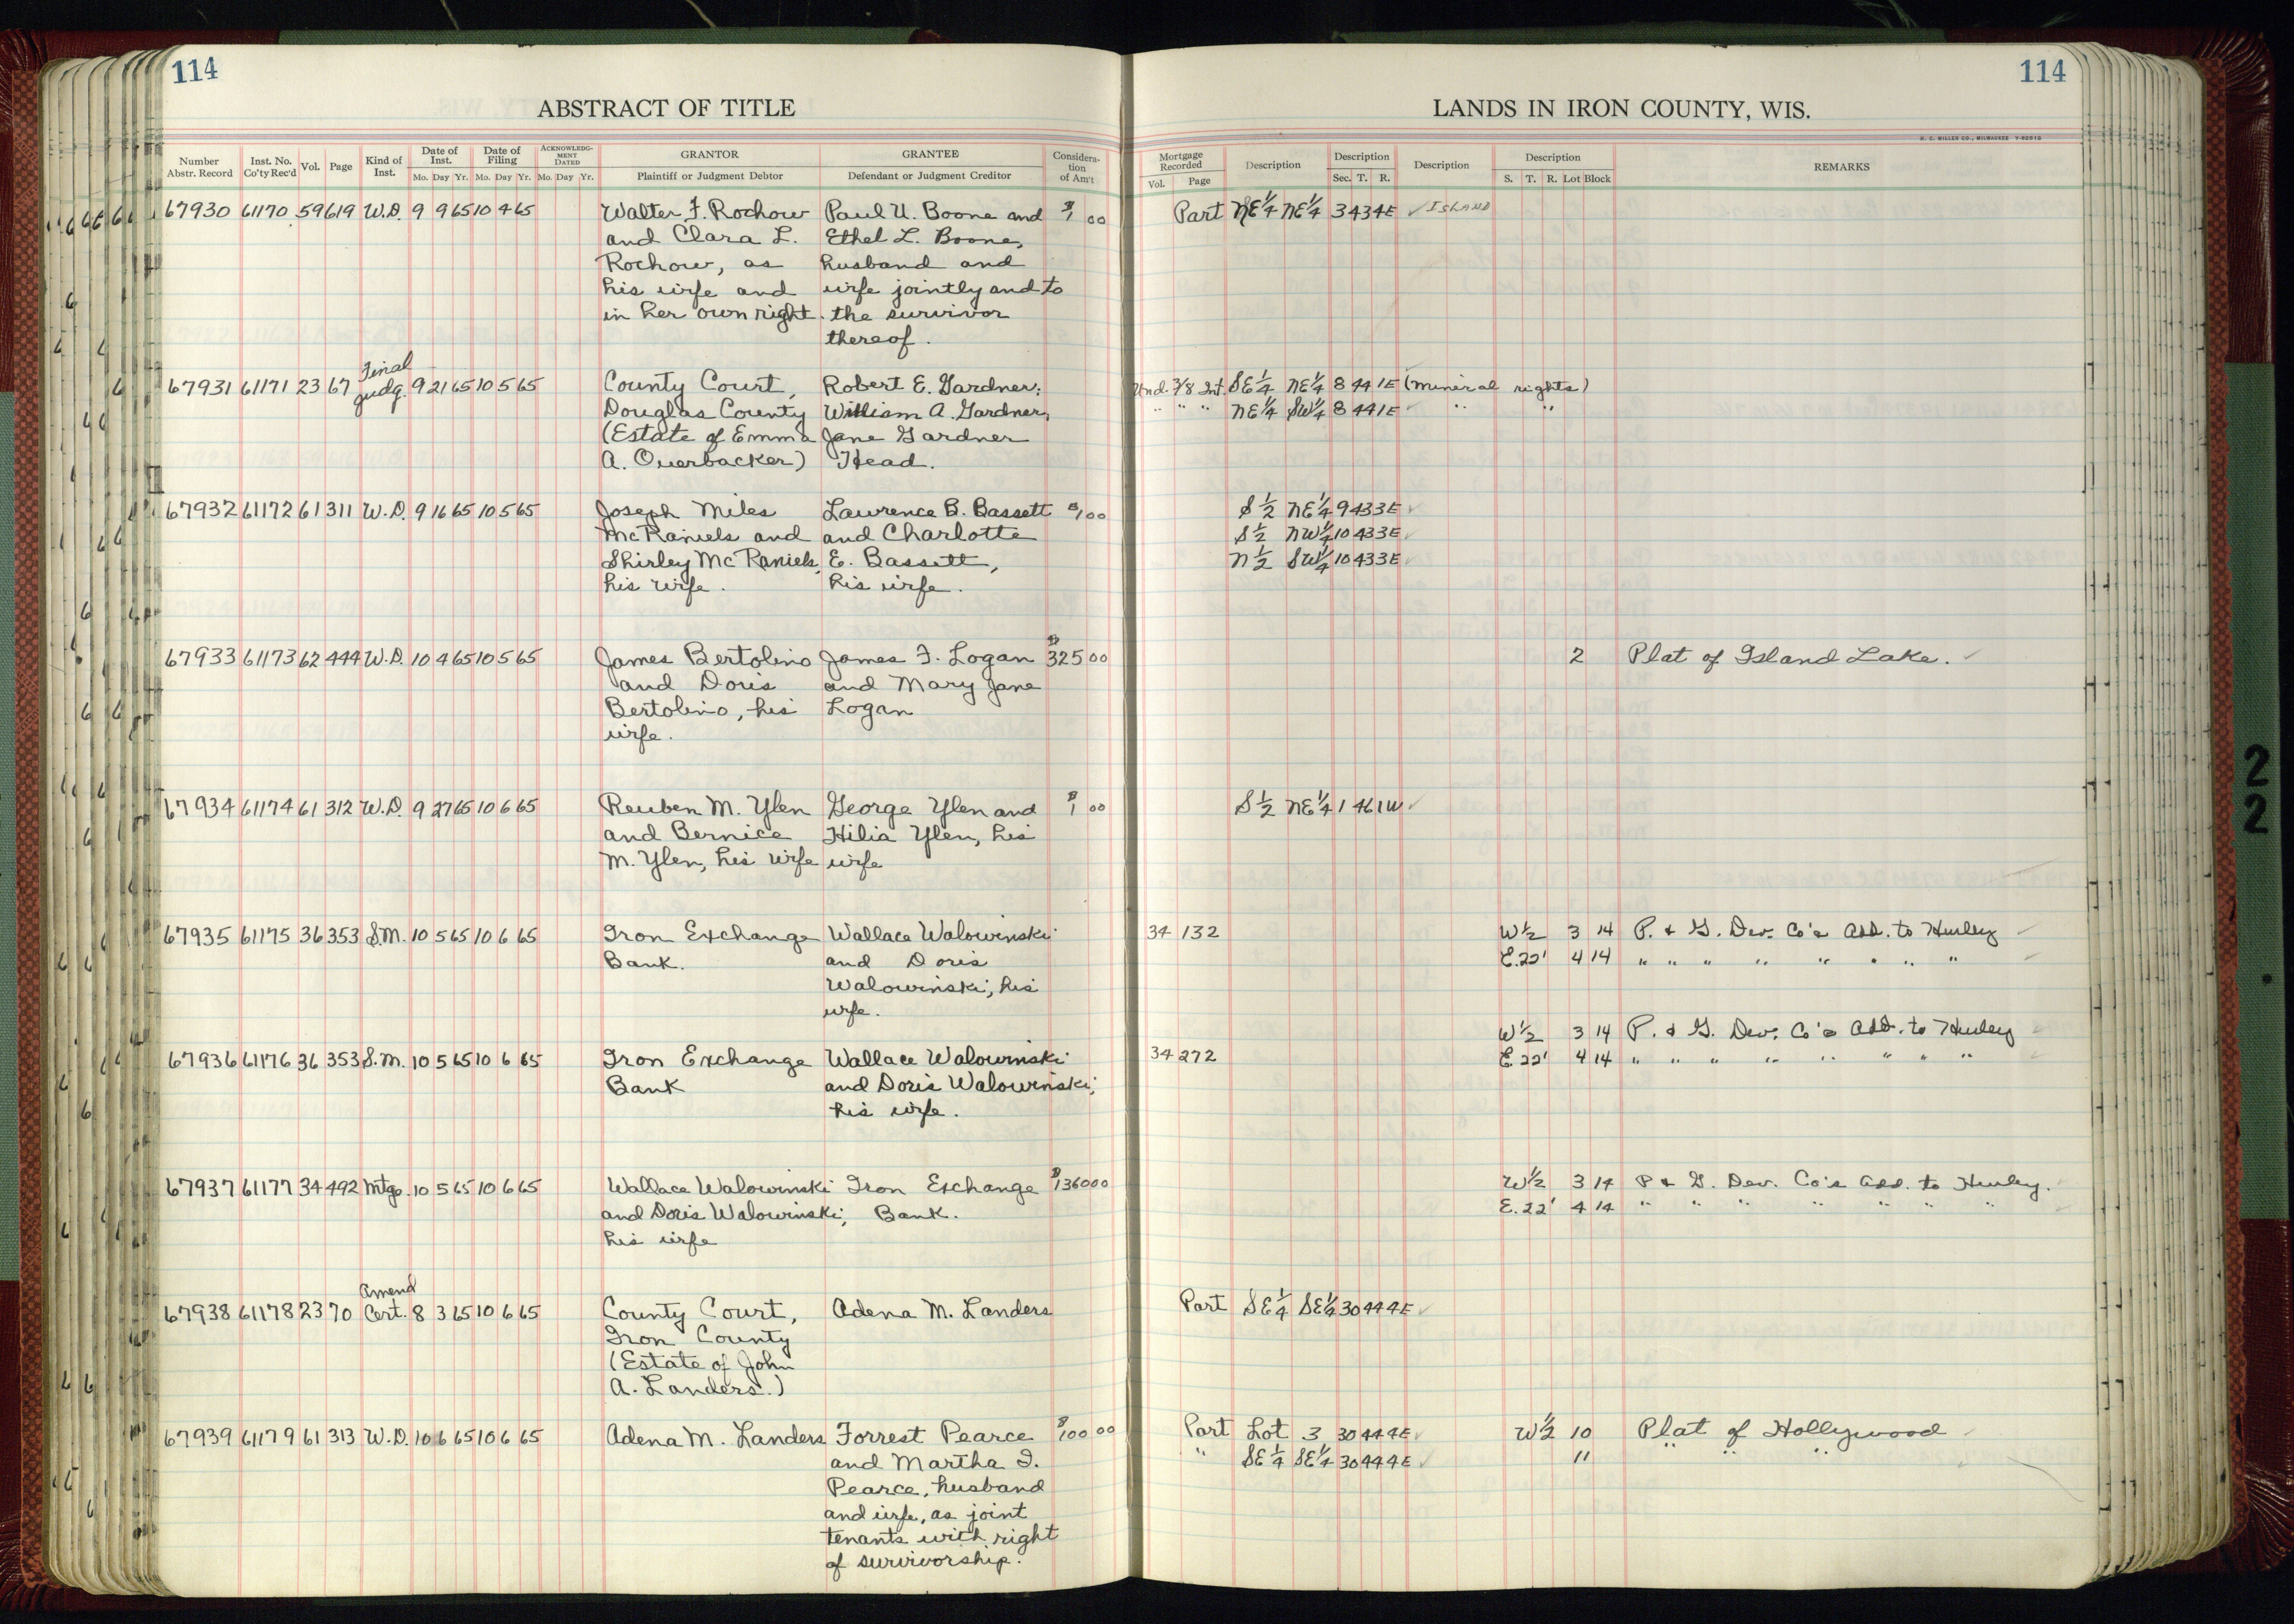 114
ABSTRACT OF TITLE
Number Abstr. Record Inst. No. Co'ty Rec'd Vol. Page Kind of Inst. Date of Inst. Mo. Day Yr. Date of Filing Mo. Day Yr. ACKNOWLEDGMENT DATED Mo. Day Yr. GRANTOR Plaintiff or Judgment Debtor GRANTEE Defendant or Judgment Creditor Consideration of Am't
67930 61170 59 619 W.D. 9 9 65 10 4 65 Walter F. Rochow Paul U. Boone and $1 00
and Clara L. Ethel L. Boone,
Rochow, as husband and
his wife and wife jointly and to
in her own right. the survivor
thereof.
Final
67931 61171 23 67 Judg. 9 21 65 10 5 65 County Court, Robert E. Gardner;
Douglas County William A. Gardner,
(Estate of Emma Jane Gardner
A. Overbacker) Head.
67932 61172 61 311 W.D. 9 16 65 10 5 65 Joseph Miles Lawrence B. Bassett $1 00
McRaniels and and Charlotte
Shirley McRaniels, E. Bassett,
his wife. his wife.
67933 61173 62 444 W.D. 10 4 65 10 5 65 James Bertolino James F. Logan $325 00
and Doris and Mary Jane
Bertolino, his Logan
wife.
67934 61174 61 312 W.D. 9 27 65 10 6 65 Reuben M. Ylen George Ylen and $1 00
and Bernice Hilia Ylen, his
M. Ylen, his wife wife
67935 61175 36 353 S.M. 10 5 65 10 6 65 Iron Exchange Wallace Walowinski
Bank. and Doris
Walowinski, his
wife.
67936 61176 36 353 S.M. 10 5 65 10 6 65 Iron Exchange Wallace Walowinski
Bank and Doris Walowinski,
his wife.
67937 61177 34 492 Mtge. 10 5 65 10 6 65 Wallace Walowinski Iron Exchange $1360 00
and Doris Walowinski, Bank.
his wife
Amend
67938 61178 23 70 Cert. 8 3 65 10 6 65 County Court, Adena M. Landers
Iron County
(Estate of John
A. Landers.)
67939 61179 61 313 W.D. 10 6 65 10 6 65 Adena M. Landers Forrest Pearce $100 00
and Martha I.
Pearce, husband
and wife, as joint
tenants with right
of survivorship.
114
LANDS IN IRON COUNTY, WIS.
H. C. MILLER CO., MILWAUKEE
Mortgage Recorded Vol. Page Description Description Sec. T. R. Description Description S. T. R. Lot Block REMARKS
Part NE¼ NE¼ 3 43 4E ✓ ISLAND
Und. 3/8 Int. SE¼ NE¼ 8 44 1E (Mineral rights)
" " " NE¼ SW¼ 8 44 1E ✓ " "
S½ NE¼ 9 43 3E ✓
S½ NW¼ 10 43 3E ✓
N½ SW¼ 10 43 3E ✓
2 Plat of Island Lake. ✓
S½ NE¼ 1 46 1W ✓
34 132 W½ 3 14 P. & G. Dev. Co's Add. to Hurley ✓
E.22' 4 14 " " " " " " " " ✓
W½ 3 14 P. & G. Dev. Co's Add. to Hurley ✓
34 272 E.22' 4 14 " " " " " " " " ✓
W½ 3 14 P & G. Dev. Co's Add. to Hurley. ✓
E.22' 4 14 " " " " " " " ✓
Part SE¼ SE¼ 30 44 4E ✓
Part Lot 3 30 44 4E ✓ W½ 10 Plat of Hollywood ✓
" SE¼ SE¼ 30 44 4E ✓ 11 " " "
2
2